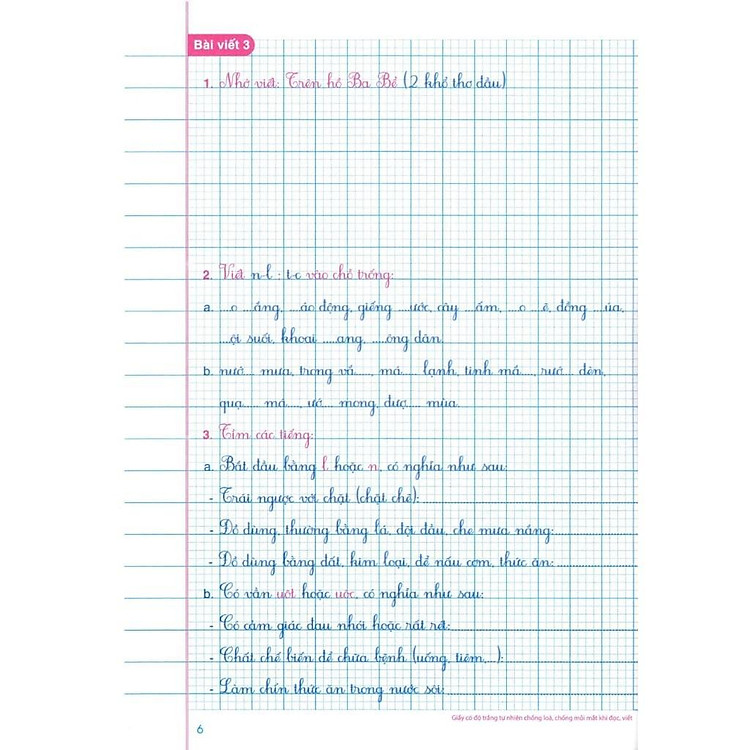 Bài viết 3
1. Nhớ viết: Trên hồ Ba Bể (2 khổ thơ đầu)
2. Viết n-l ; t-c vào chỗ trống:
a. ....o ....ắng, ....áo động, giếng ....ước, cây ....ấm, ....o ....ê, đồng ....úa,
....ội suối, khoai .....ang, .....ông dân.
b. nướ.... mưa, trong vắ....., má..... lạnh, tinh mắ....., rướ.... đèn,
quạ..... má....., ướ.... mong, dượ.... mùa.
3. Tìm các tiếng:
a. Bắt đầu bằng l hoặc n, có nghĩa như sau:
- Trái ngược với chặt (chặt chẽ):
- Đồ dùng, thường bằng lá, đội đầu, che mưa nắng:
- Đồ dùng bằng đất, kim loại, để nấu cơm, thức ăn:
b. Có vần uôt hoặc uôc, có nghĩa như sau:
- Có cảm giác đau nhói hoặc rát rét:
- Chất chế biến để chữa bệnh (uống, tiêm,...):
- Làm chín thức ăn trong nước sôi:
Giấy có độ trắng tự nhiên chống loá, chống mỏi mắt khi đọc, viết
6